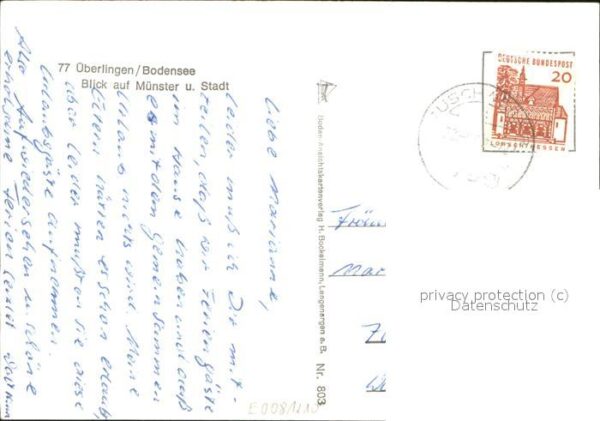 77 Überlingen/Bodensee
Blick auf Münster u. Stadt
Liebe Marianne,
leider muß ich Dir mit-
teilen, daß wir Feriengäste
im Hause haben und daß
es mit dem gemeinsamen
Urlaub nichts wird. Meine
Eltern hätten es schon erlaubt,
aber leider mußten sie diese
Urlaubsgäste aufnehmen.
Also Aufwiedersehen u. schöne
erholsame Ferien
Boden Ansichtskartenverlag H. Bockelmann, Langenargen a. B. Nr. 803
DEUTSCHE BUNDESPOST
20
LORSCH/HESSEN
Mar
privacy protection (c)
Datenschutz
E0081210